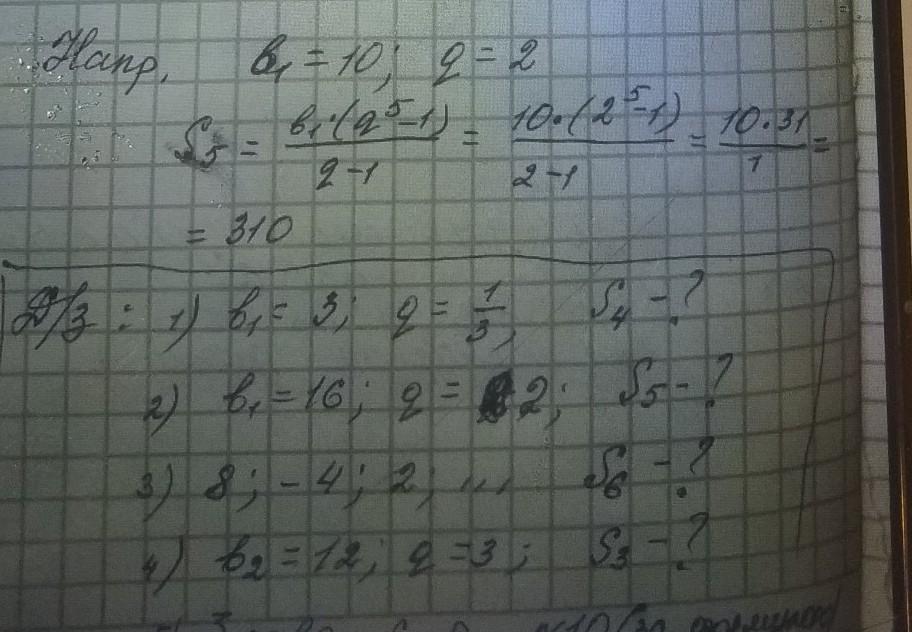 Напр, b₁ = 10; q = 2
S₅ = b₁·(q⁵-1) / q-1 = 10·(2⁵-1) / 2-1 = 10·31 / 1 =
= 310
Д/з : 1) b₁ = 3; q = 1/3; S₄ - ?
2) b₁ = 16; q = 2; S₅ - ?
3) 8; -4; 2; ... S₆ - ?
4) b₂ = 12; q = 3; S₃ - ?